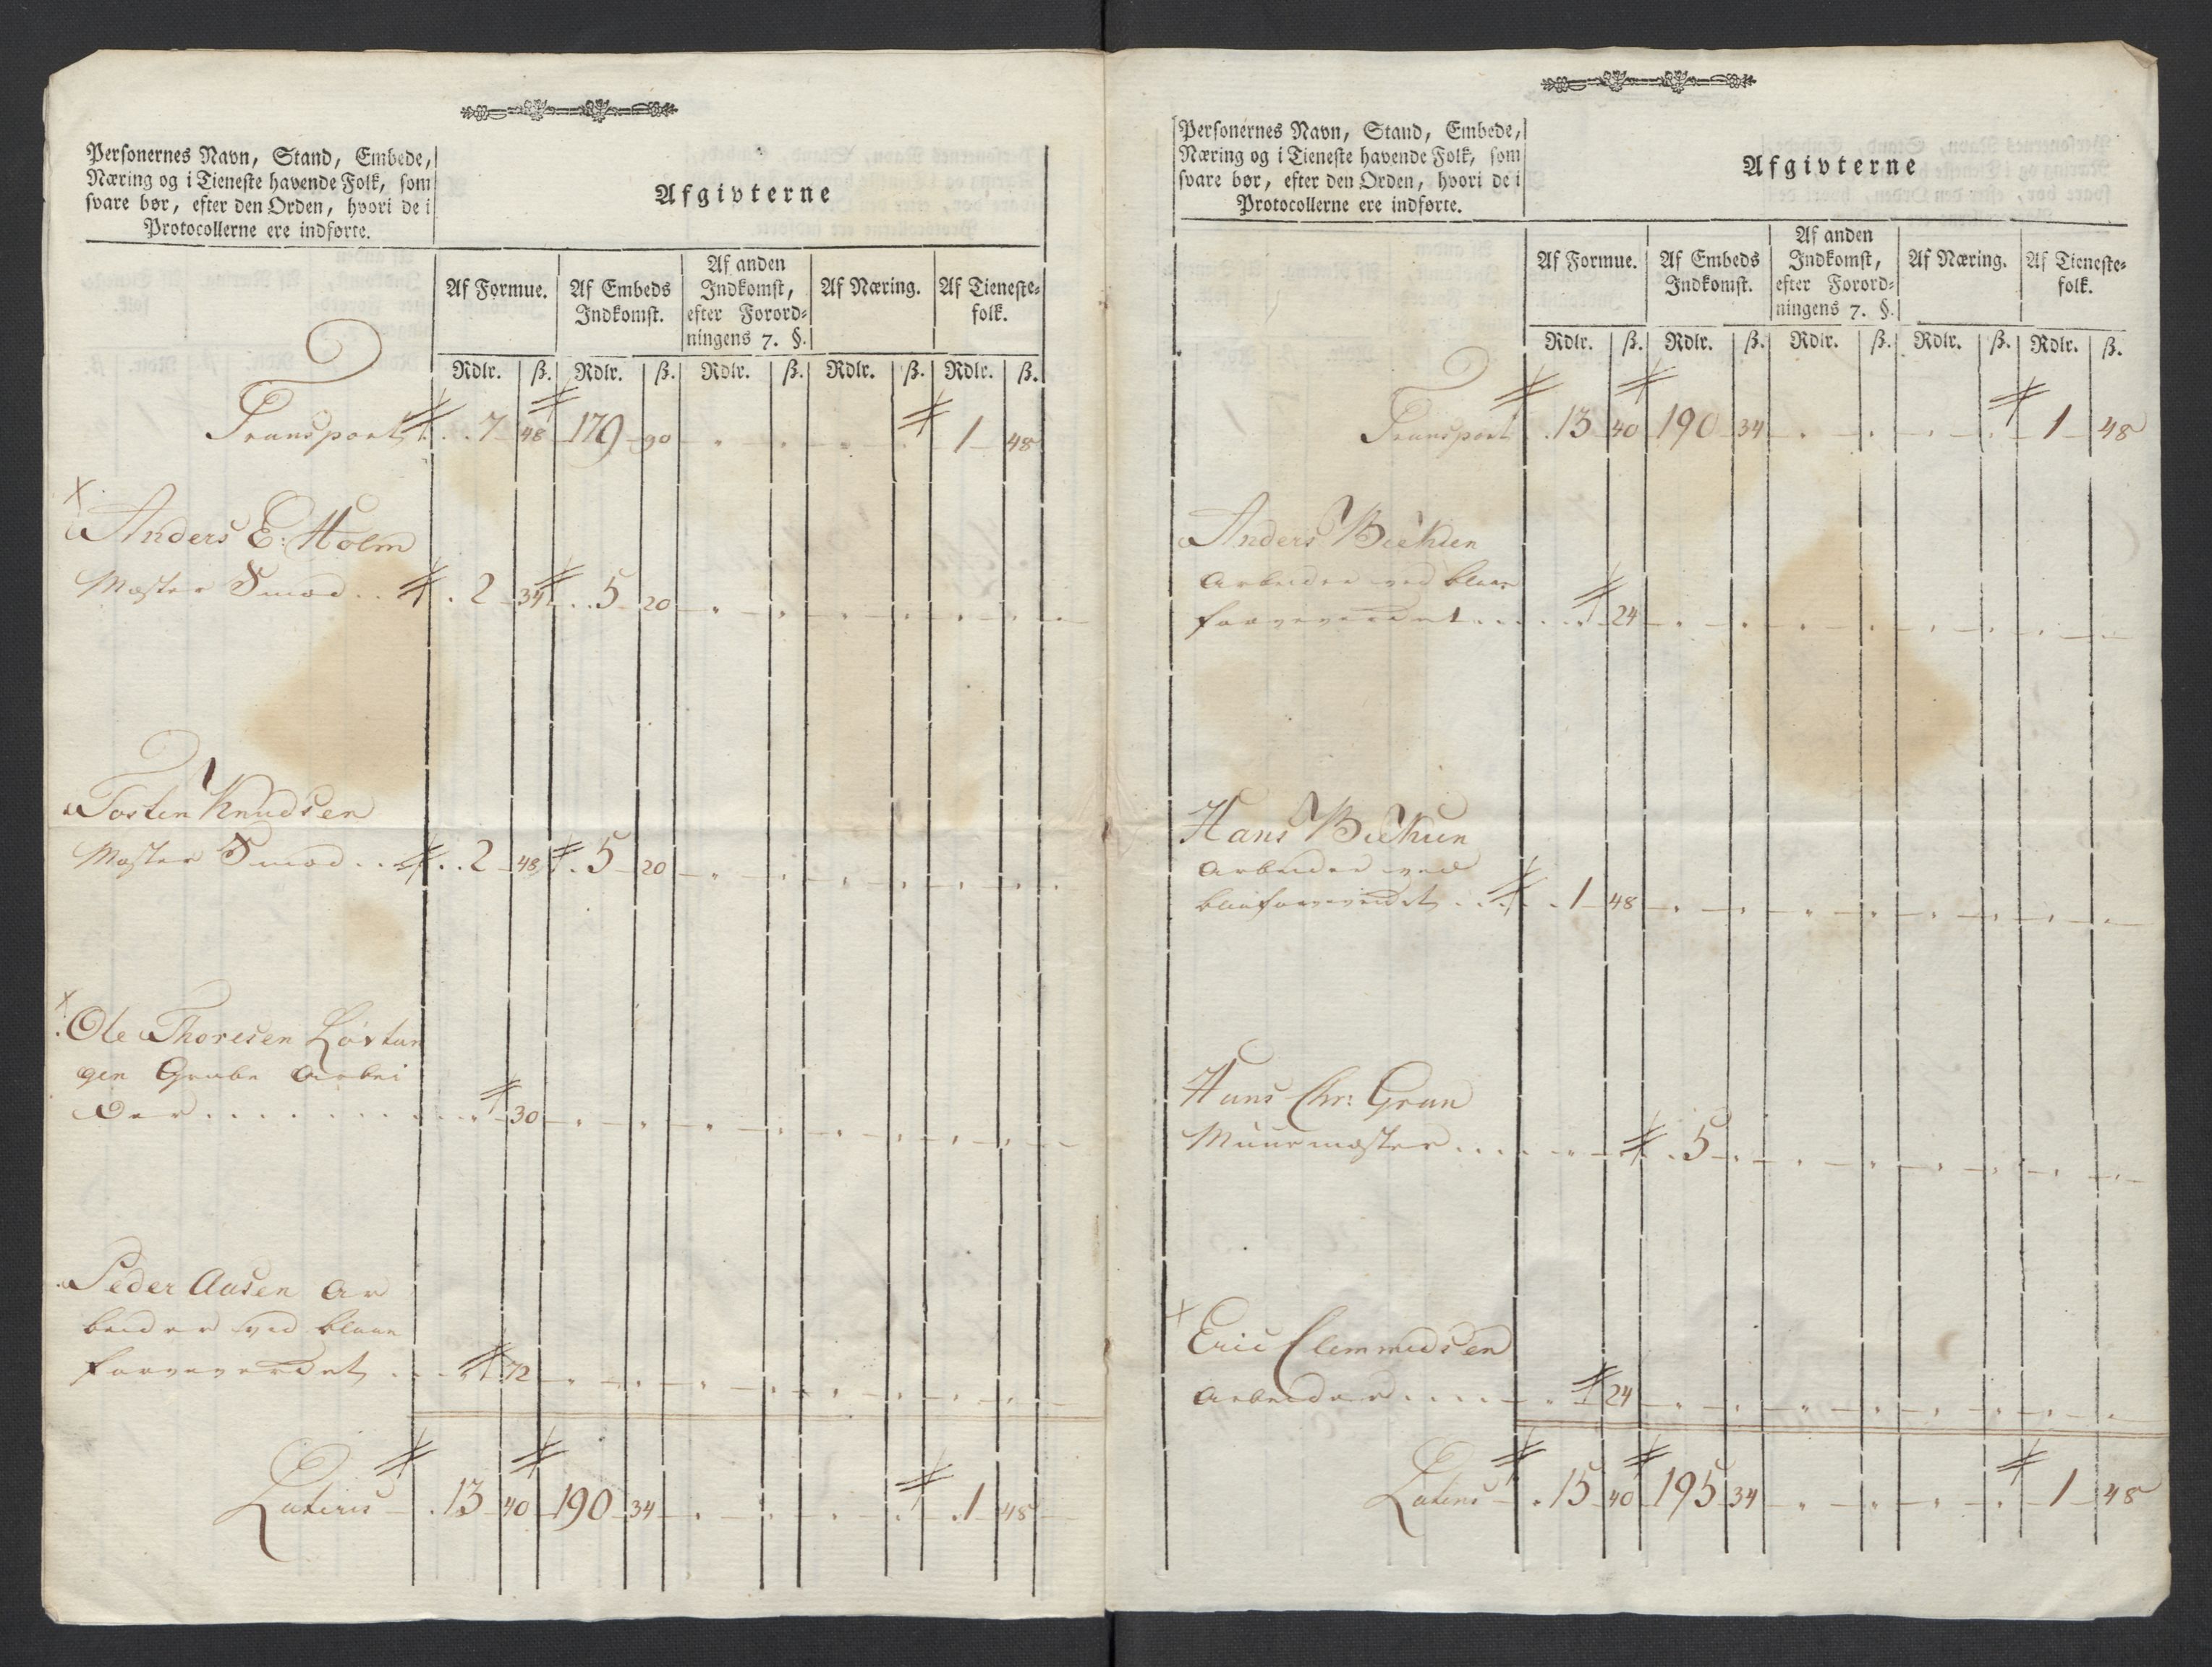 Personernes Navn, Stand, Embede,
Næring og i Tieneste havende Folk, som
svare bør, efter den Orden, hvori de i
Protocollerne ere indførte.
Afgivterne
Af Formue. Af Embeds Indkomst. Af anden Indkomst, efter Forord-ningens 7. §. Af Næring. Af Tieneste-folk.
Rdlr. ß. Rdlr. ß. Rdlr. ß. Rdlr. ß. Rdlr. ß.
Transport 7 48 179 90 1 48
Anders E: Holm
Mester Smed 2 34 5 20
Tosten Knudsen
Mester Smed 2 48 5 20
Ole Thoresen Løvtun
gen Grube Arbei
der 30
Peder Aasen Ar
beider ved blaae
farveverdet 72
Lateris 13 40 190 34 1 48
Personernes Navn, Stand, Embede,
Næring og i Tieneste havende Folk, som
svare bør, efter den Orden, hvori de i
Protocollerne ere indførte.
Afgivterne
Af Formue. Af Embeds Indkomst. Af anden Indkomst, efter Forord-ningens 7. §. Af Næring. Af Tieneste-folk.
Rdlr. ß. Rdlr. ß. Rdlr. ß. Rdlr. ß. Rdlr. ß.
Transport 13 40 190 34 1 48
Anders
Arbeider ved blaae
farveverdet 24
Hans
Arbeider ved
blaafarveverdet 1 48
Hans Chr: Gran
Muurmester 5
Eric Clemmedsen
Arbeider 24
Lateris 15 40 195 34 1 48